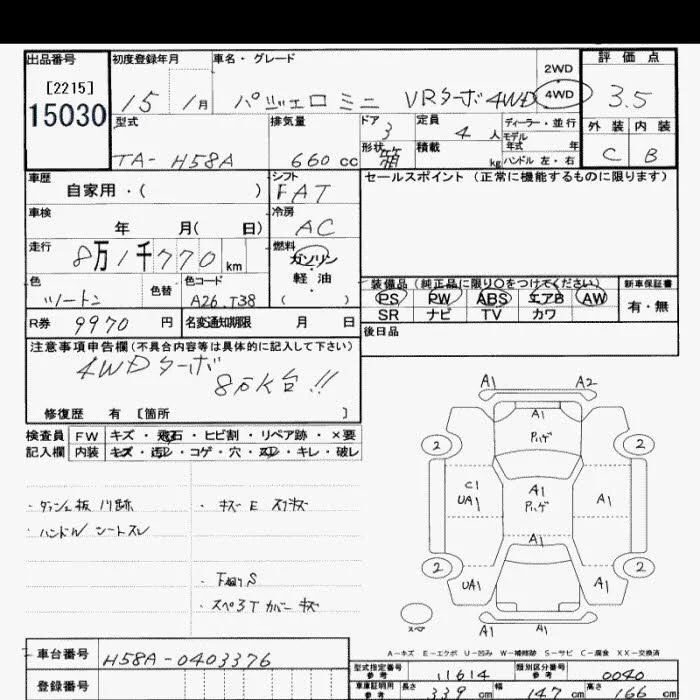 出品番号
[2215]
15030
初度登録年月
15 1月
車名・グレード
パジェロミニ VRターボ4WD
2WD
4WD
評価点
3.5
型式
TA- H58A
排気量
660 cc
ドア
3
形状
箱
定員
4 人
積載
kg
ディーラー・並行
モデル
年式 年
ハンドル 左・右
外装 内装
C B
車歴
自家用・( )
シフト
FAT
セールスポイント(正常に機能するものに限ります)
車検
年 月( 日)
冷房
AC
走行
8万1千770 km
燃料
ガソリン
・
軽油
( )
色
ツートン
色替
色コード
A26.T38
装備品(純正品に限り○をつけてください)
PS PW ABS エアB AW
SR ナビ TV カワ
新車保証書
有・無
R券 9970 円
名変通知期限 月 日
後日品
注意事項申告欄(不具合内容等は具体的に記入して下さい)
4WDターボ
8万K台!!
修復歴 有 [箇所 ]
検査員
記入欄
FW キズ・飛石・ヒビ割・リペア跡・×要
内装 キズ・・コゲ・穴・・キレ・破レ
・ダッシュ板 ハリ跡
・ハンドル シートスレ
・キズE スリキズ
・F廻りS
・スペ3Tカバーキズ
A1 A2
A1
ハゲ
2 2
C1
UA1
A1
ハゲ
A1
A1
2 2
UA1 A1
スペア
A1 A1
A-キズ E-エクボ U-凹み W-補修跡 S-サビ C-腐食 XX-交換済
車台番号 H58A-0403376
登録番号
型式指定番号
参考
11614
類別区分番号
参考
0040
車庫証明用
参考
長さ 339 cm 幅 147 cm 高さ 166 cm